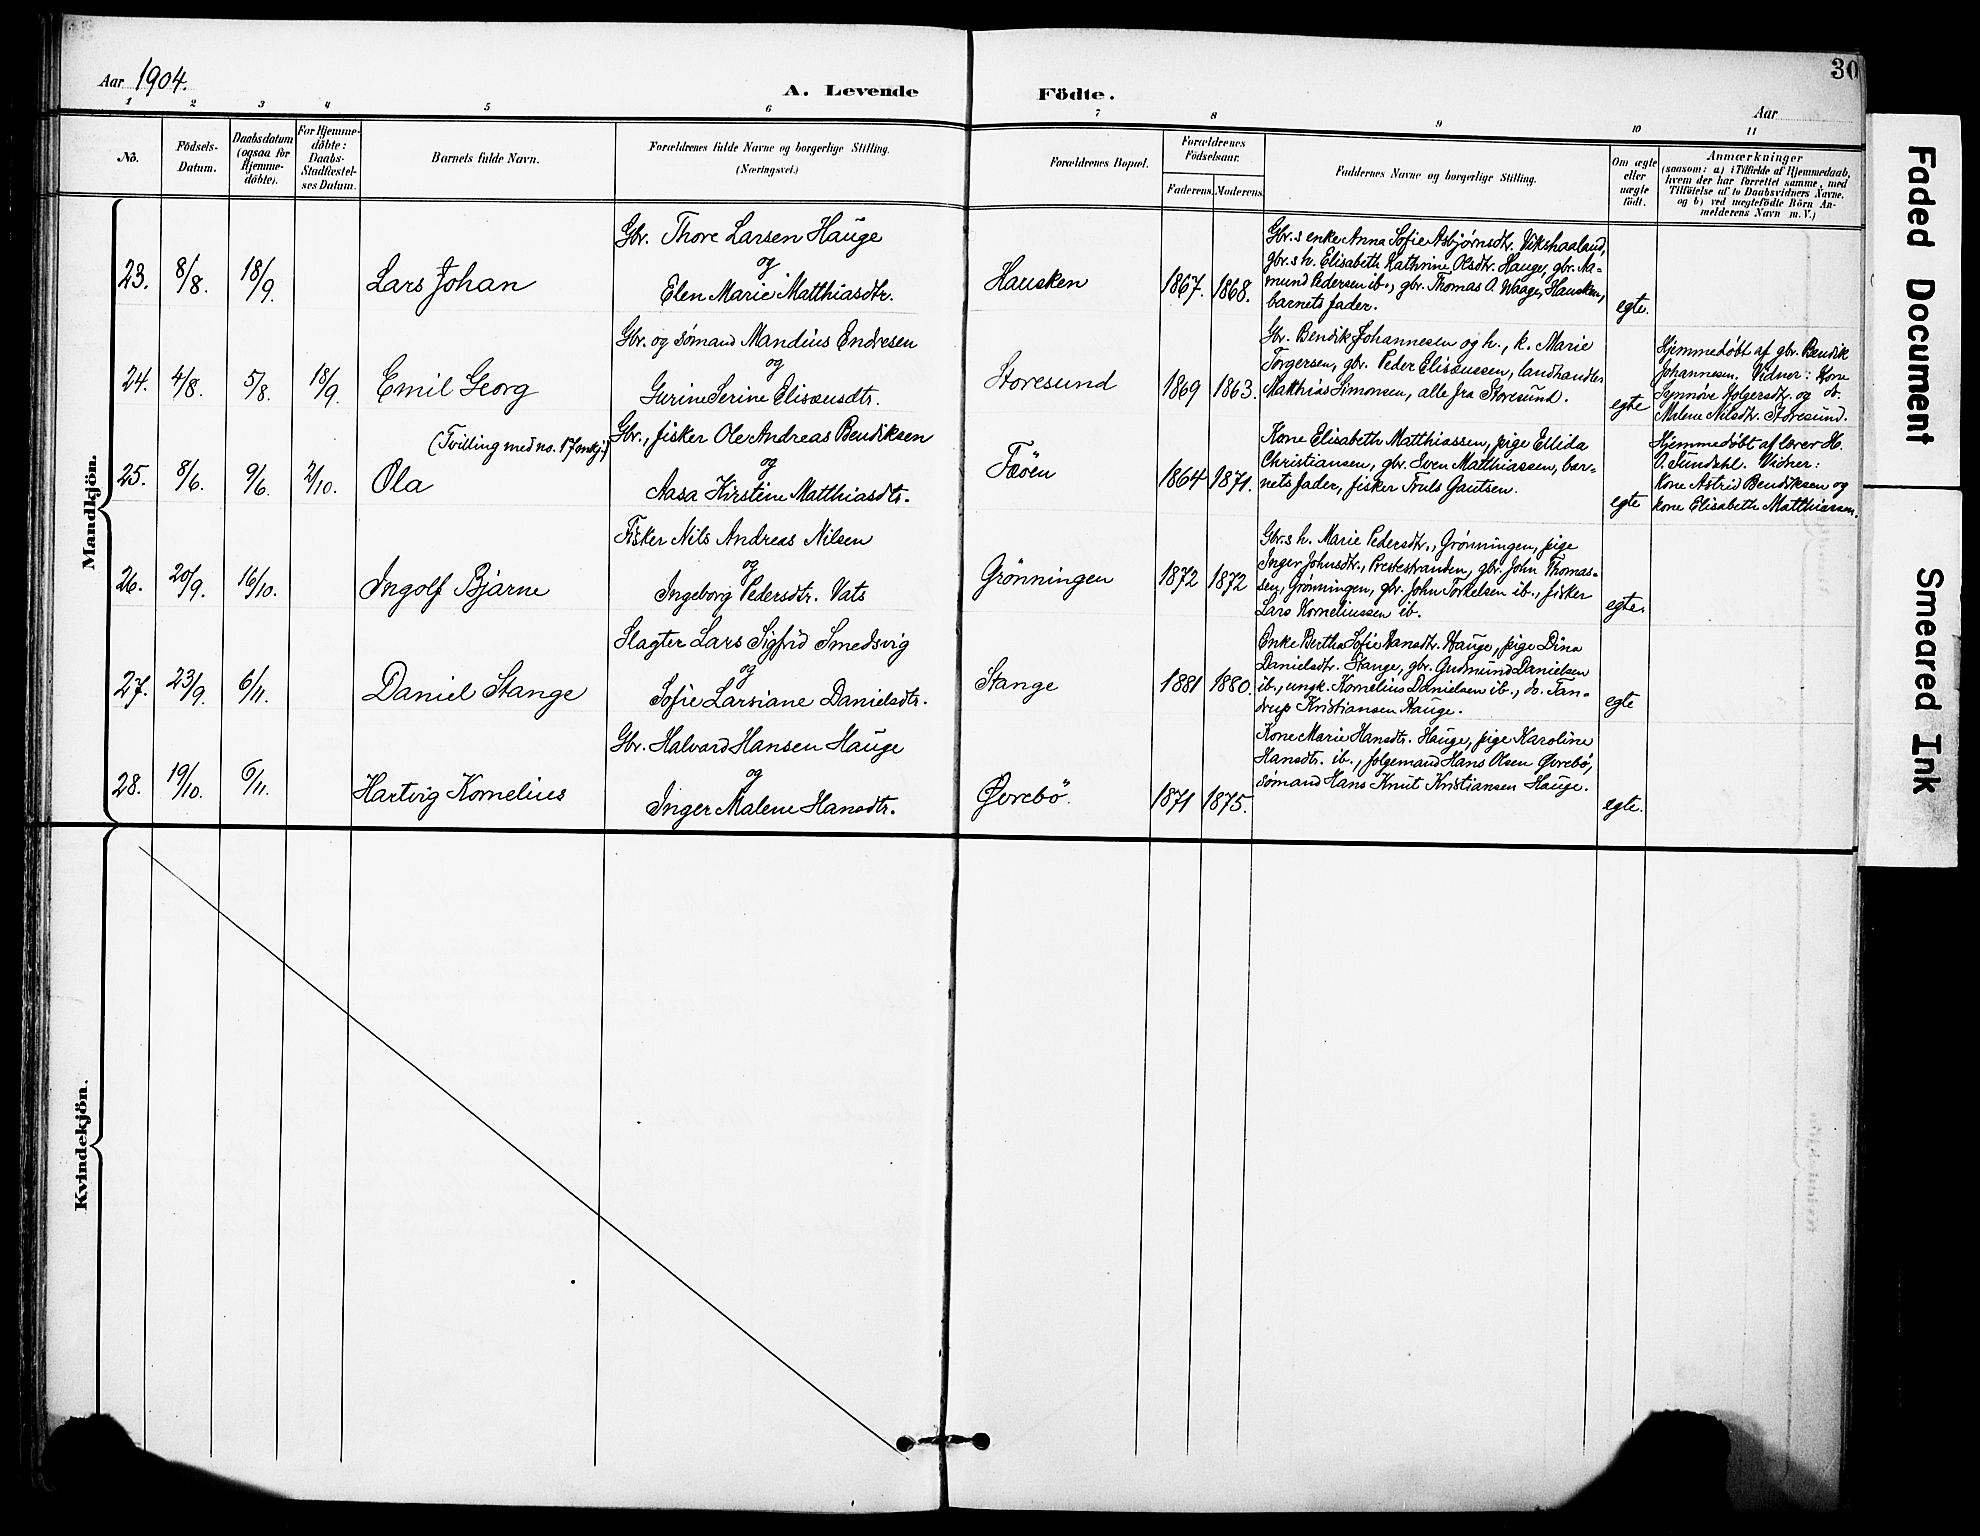 Aar 1904.
A. Levende Födte.
Aar
30
1 2 3 4 5 6 7 8 9 10 11
No.
Födsels-
Datum.
Daabsdatum
(ogsaa for
Hjemme-
döbte).
For Hjemme-
döbte:
Daabs-
Stadfæstel-
ses Datum.
Barnets fulde Navn.
Forældrenes fulde Navne og borgerlige Stilling.
(Næringsvei.)
Forældrenes Bopæl.
Forældrenes
Födselsaar.
Faderens. Moderens.
Faddernes Navne og borgerlige Stilling.
Om ægte
eller
uægte
födt.
Anmærkninger
(saasom: a) i Tilfælde af Hjemmedaab,
hvem der har forrettet samme, med
Tilföielse af to Daabsvidners Navne,
og b) ved uægtefödte Börn An-
melderens Navn m. V.)
Mandkjön.
23. 8/8. 18/9.
Lars Johan
Gbr. Thore Larsen Hauge
og
Elen Marie Matthiasdtr.
Hausken
1867. 1868.
Gbr.s enke Anna Sofie Asbjørnsdtr. Vikshaaland,
gbr.s h. Elisabeth Kathrine Olsdtr. Hauge, gbr. Aa-
mund Pedersen ib., gbr. Thomas O. Waage, Hausken,
barnets fader.
egte.
24. 4/8. 5/8. 18/9.
Emil Georg
Gbr. og sømand Mandius Endresen
og
Gurine Serine Elisæusdtr.
Storesund
1869 1863.
Gbr. Bendik Johannesen og h., k. Marie
Torgersen, gbr. Peder Elisæussen, landhandler
Matthias Simonsen, alle fra Storesund.
egte
Hjemmedøbt af gbr. Bendik
Johannesen. Vidner: Kone
Synnøve Holgersdtr. og do.
Malene Nilsdtr. Storesund.
25. 8/6. 9/6. 2/10.
(Tvilling med no. 17 mkj.)
Ola
Gbr., fisker Ole Andreas Bendiksen
og
Aasa Kirstine Matthiasdtr.
Fæöen
1864 1871.
Kone Elisabeth Matthiassen, pige Ellida
Christiansen, gbr. Sven Matthiassen, bar-
nets fader, fisker Truls Gautsen.
egte
Hjemmedøbt af lærer H.
O. Sundahl. Vidner:
Kone Astrid Bendiksen og
kone Elisabeth Matthiassen.
26. 20/9. 16/10.
Ingolf Bjarne
Fisker Nils Andreas Nilsen
og
Ingeborg Pedersdtr. Vats
Grönningen
1872 1872
Gbr.s h. Marie Pedersdtr., Grønningen, pige
Inger Johnsdtr., Prestestranden, gbr. John Thomas-
sen, Grønningen, gbr. John Torkelsen ib., fisker
Lars Korneliussen ib.
egte.
27. 23/9. 6/11.
Daniel Stange
Slagter Lars Sigfrid Smedsvig
og
Sofie Larsiane Danielsdtr.
Stange
1881 1880.
Enke Bertha Sofie Hansdtr. Hauge, pige Dina
Danielsdtr. Stange, gbr. Gudmund Danielsen
ib., ungk. Kornelius Danielsen ib., do. Tan-
drup Kristiansen Hauge.
egte
28. 19/10. 6/11.
Hartvig Kornelius
Gbr. Halvard Hansen Hauge
og
Inger Malene Hansdtr.
Øvrebö.
1871 1875.
Kone Marie Hansdtr. Hauge, pige Karoline
Hansdtr. ib., følgemand Hans Olsen Øvrebö,
sømand Hans Knut Kristiansen Hauge.
egte.
Kvindekjön.
Faded Document
Smeared Ink